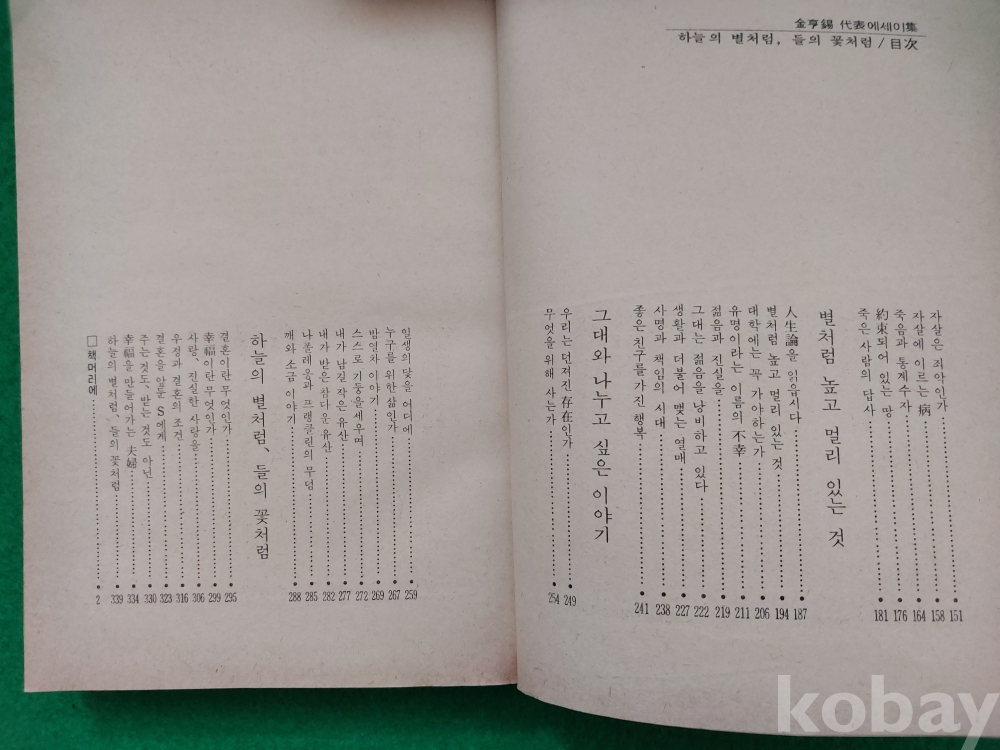 金亨錫 代表에세이集
하늘의 별처럼, 들의 꽃처럼/目次
자살은 죄악인가 151
자살에 이르는 病 158
죽음과 통계수자 164
約束되어 있는 땅 176
죽은 사람의 답사 181
별처럼 높고 멀리 있는 것
人生論을 읽읍시다 187
별처럼 높고 멀리 있는 것 194
대학에는 꼭 가야하는가 206
유명이라는 이름의 不幸 211
젊음과 진실을 219
그대는 젊음을 낭비하고 있다 222
생활과 더불어 맺는 열매 227
사명과 책임의 시대 238
좋은 친구를 가진 행복 241
그대와 나누고 싶은 이야기
우리는 던져진 存在인가 249
무엇을 위해 사는가 254
일생의 닻을 어디에 259
누구를 위한 삶인가 267
밤열차 이야기 269
스스로 기둥을 세우며 272
내가 남길 작은 유산 277
내가 받은 참다운 유산 282
나폴레옹과 프랭클린의 무덤 285
깨와 소금 이야기 288
하늘의 별처럼, 들의 꽃처럼
결혼이란 무엇인가 295
幸福이란 무엇인가 299
사랑, 진실한 사랑을 306
우정과 결혼의 조건 316
결혼을 앞둔 S에게 323
주는 것도, 받는 것도 아닌 330
幸福을 만들어가는 夫婦 334
하늘의 별처럼, 들의 꽃처럼 339
□ 책머리에 2
kobay